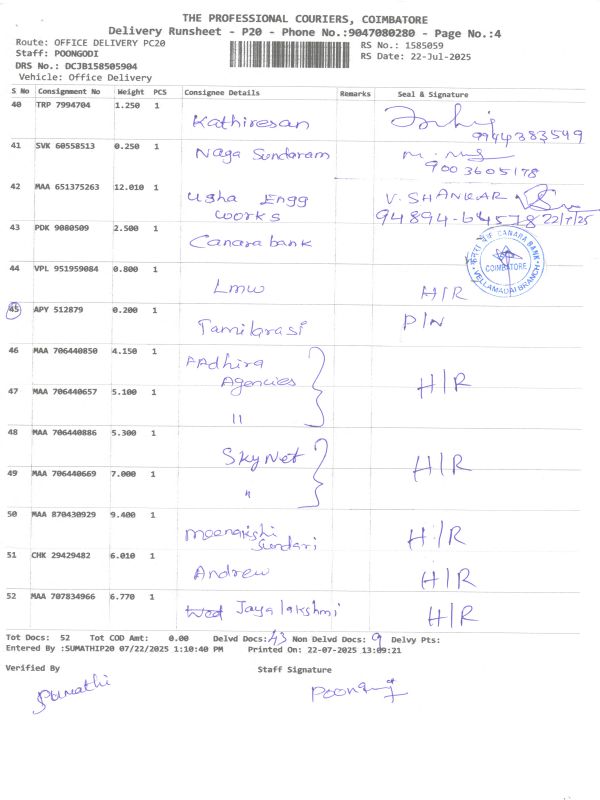 THE PROFESSIONAL COURIERS, COIMBATORE
Delivery Runsheet - P20 - Phone No.:9047080280 - Page No.:4
Route: OFFICE DELIVERY PC20
RS No.: 1585059
Staff: POONGODI
RS Date: 22-Jul-2025
DRS No.: DCJB158505904
Vehicle: Office Delivery
S No Consignment No Weight PCS Consignee Details Remarks Seal & Signature
40 TRP 7994704 1.250 1 Kathiresan 9944383549
41 SVK 60558513 0.250 1 Naga Sundaram 9003605178
42 MAA 651375263 12.010 1 Usha Engg V. SHANKAR
Works 94894-64578 22/7/25
43 PDK 9080509 2.500 1 Canara bank
केनरा बैंक CANARA BANK
COIMBATORE
VELLAMADAI BRANCH
44 VPL 951959084 0.800 1 LMW H/R
45 APY 512879 0.200 1 Tamilarasi P/N
46 MAA 706440850 4.150 1 AAdhira
Agencies H/R
47 MAA 706440657 5.100 1 "
48 MAA 706440886 5.300 1 SkyNet H/R
49 MAA 706440669 7.000 1 "
50 MAA 870430929 9.400 1 Meenakshi
Sundari H/R
51 CHK 29429482 6.010 1 Andrew H/R
52 MAA 707834966 6.770 1 Jayalakshmi H/R
Tot Docs: 52 Tot COD Amt: 0.00 Delvd Docs: 43 Non Delvd Docs: 9 Delvy Pts:
Entered By :SUMATHIP20 07/22/2025 1:10:40 PM Printed On: 22-07-2025 13:09:21
Verified By Staff Signature
Sumathi